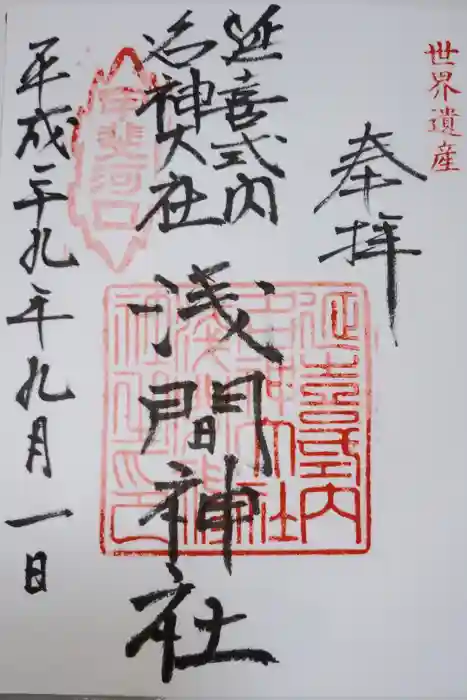 世界遺産
奉拝
延喜式内
名神大社
浅間神社
甲斐河口
平成二十九年九月一日
延喜式内